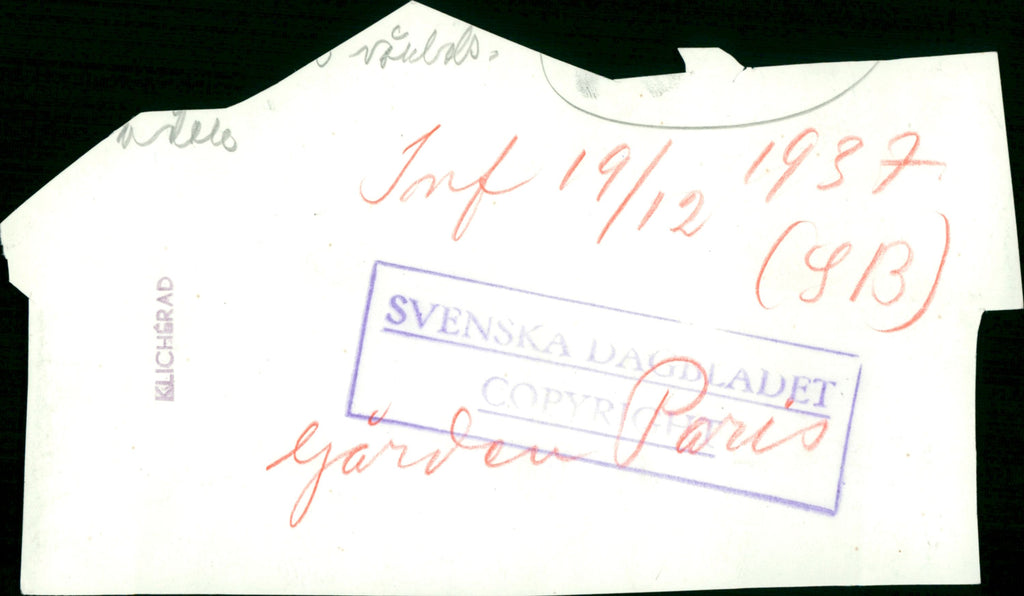 Inf 19/12 1937
(SB)
KLICHÉRAD
SVENSKA DAGBLADET
COPYRIGHT
Gården Paris